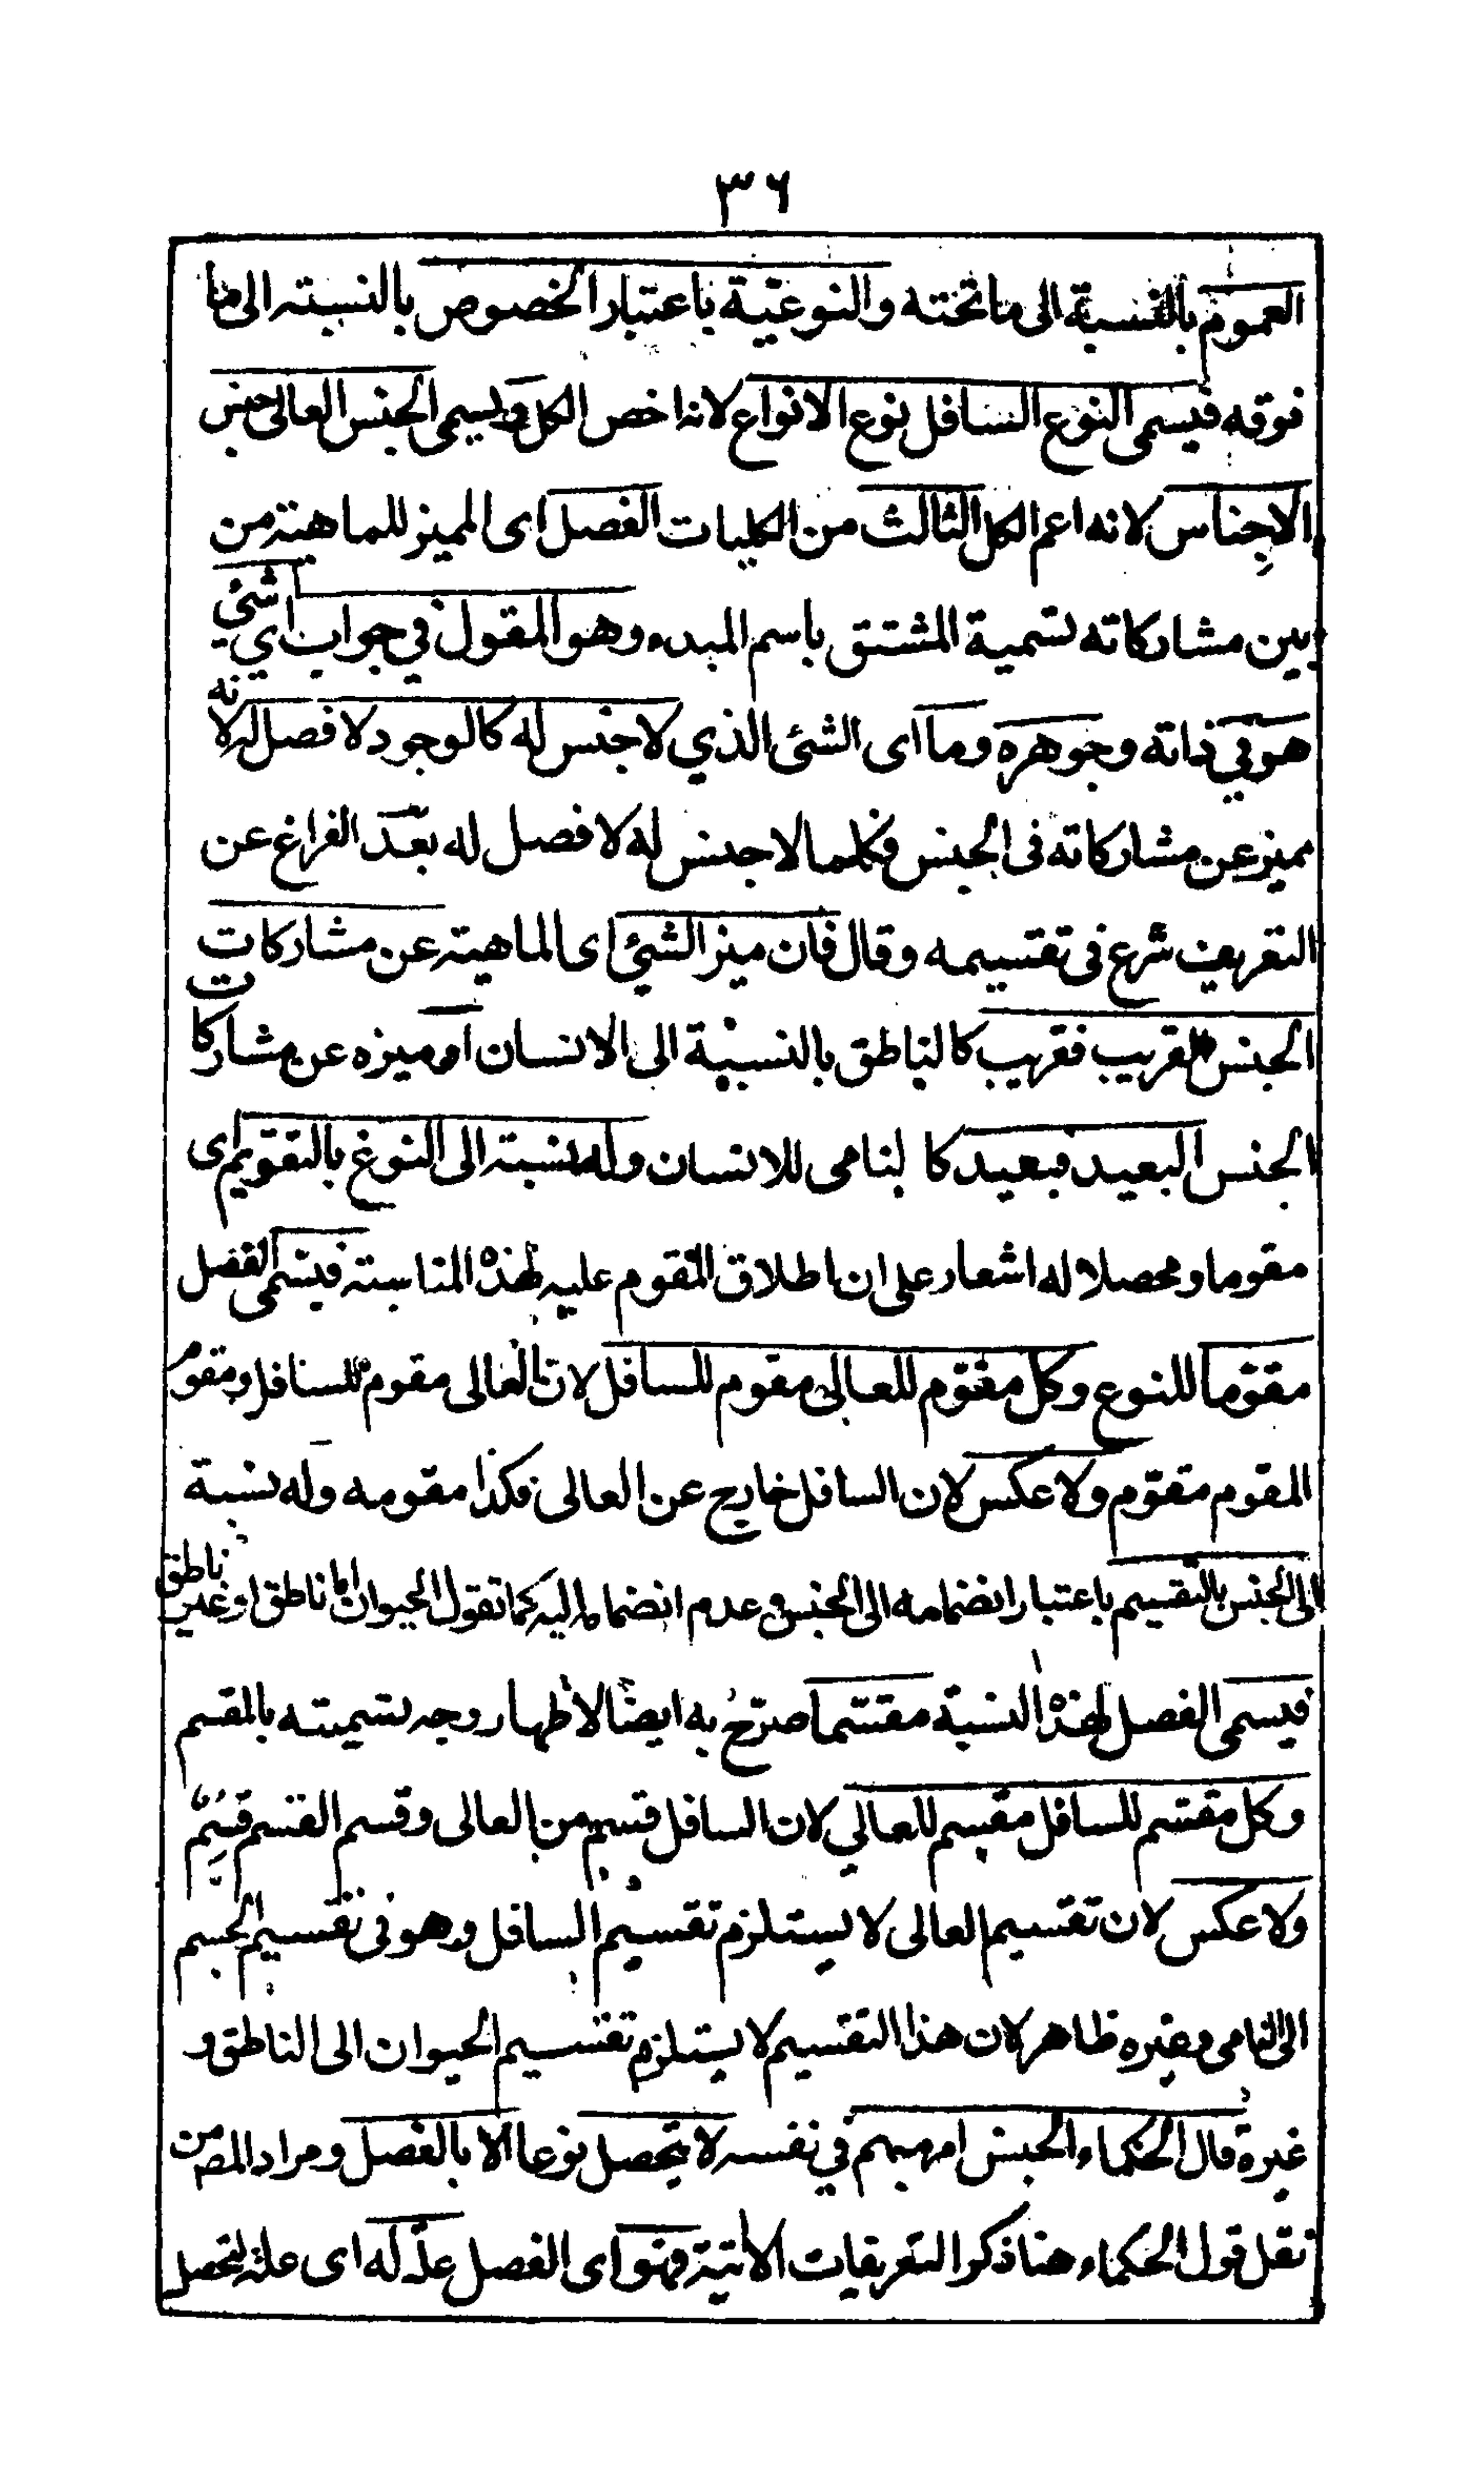 ٣٦
العموم بالنسبة الى ما تحته والنوعية باعتبار الخصوص بالنسبته الى ما
فوقه فيسمى النوع السافل نوع الانواع لانه اخص الكل ويسمى الجنس العالى جنس
الاجناس لانه اعم الكل الثالث من الكليات الفصل اى المميز للماهية من
بين مشاركاته تسمية المشتق باسم المبدء وهو المقول في جواب اي شئي
هو في ذاته وجوهره وما اى الشئ الذي لا جنس له كالوجود لا فصل له لانه
مميز عن مشاركاته فى الجنس فكلما لا جنس له لا فصل له بعد الفراغ عن
التعريف شرع فى تقسيمه وقال فان ميز الشئي اى الماهية عن مشاركات
الجنس القريب فقريب كالناطق بالنسبة الى الانسان او ميزه عن مشاركات
الجنس البعيد فبعيد كالنامى للانسان وله نسبة الى النوع بالتقويم اى
مقوما ومحصلا له اشعار على ان اطلاق المقوم عليه لهذه المناسبته فيسمى الفصل
مقوما للنوع وكل مقوم للعالى مقوم للسافل لان العالى مقوم للسافل ومقوم
المقوم مقوّم ولا عكس لان السافل خارج عن العالى فكذا مقومه وله نسبة
الى الجنس بالتقسيم باعتبار انضمامه الى الجنس وعدم انضمامه اليه كما تقول الحيوان اما ناطق او غير ناطق
فيسمى الفصل لهذه النسبة مقسّما صرّح به ايضًا لاظهار وجه تسميته بالمقسم
وكل مقسم للسافل مقسم للعالي لان السافل قسم من العالى وقسم القسم قسم
ولا عكس لان تقسيم العالى لا يستلزم تقسيم السافل وهو فى تقسيم الجسم
الى النامى وغيره ظاهر لان هذا التقسيم لا يستلزم تقسيم الحيوان الى الناطق و
غيره قال الحكماء الجنس امر مبهم في نفسه لا يتحصل نوعا الا بالفصل ومراد المصـ من
نقل قول الحكماء هنا ذكر التفريعات الاتية فهو اى الفصل علة له اى علة لتحصل